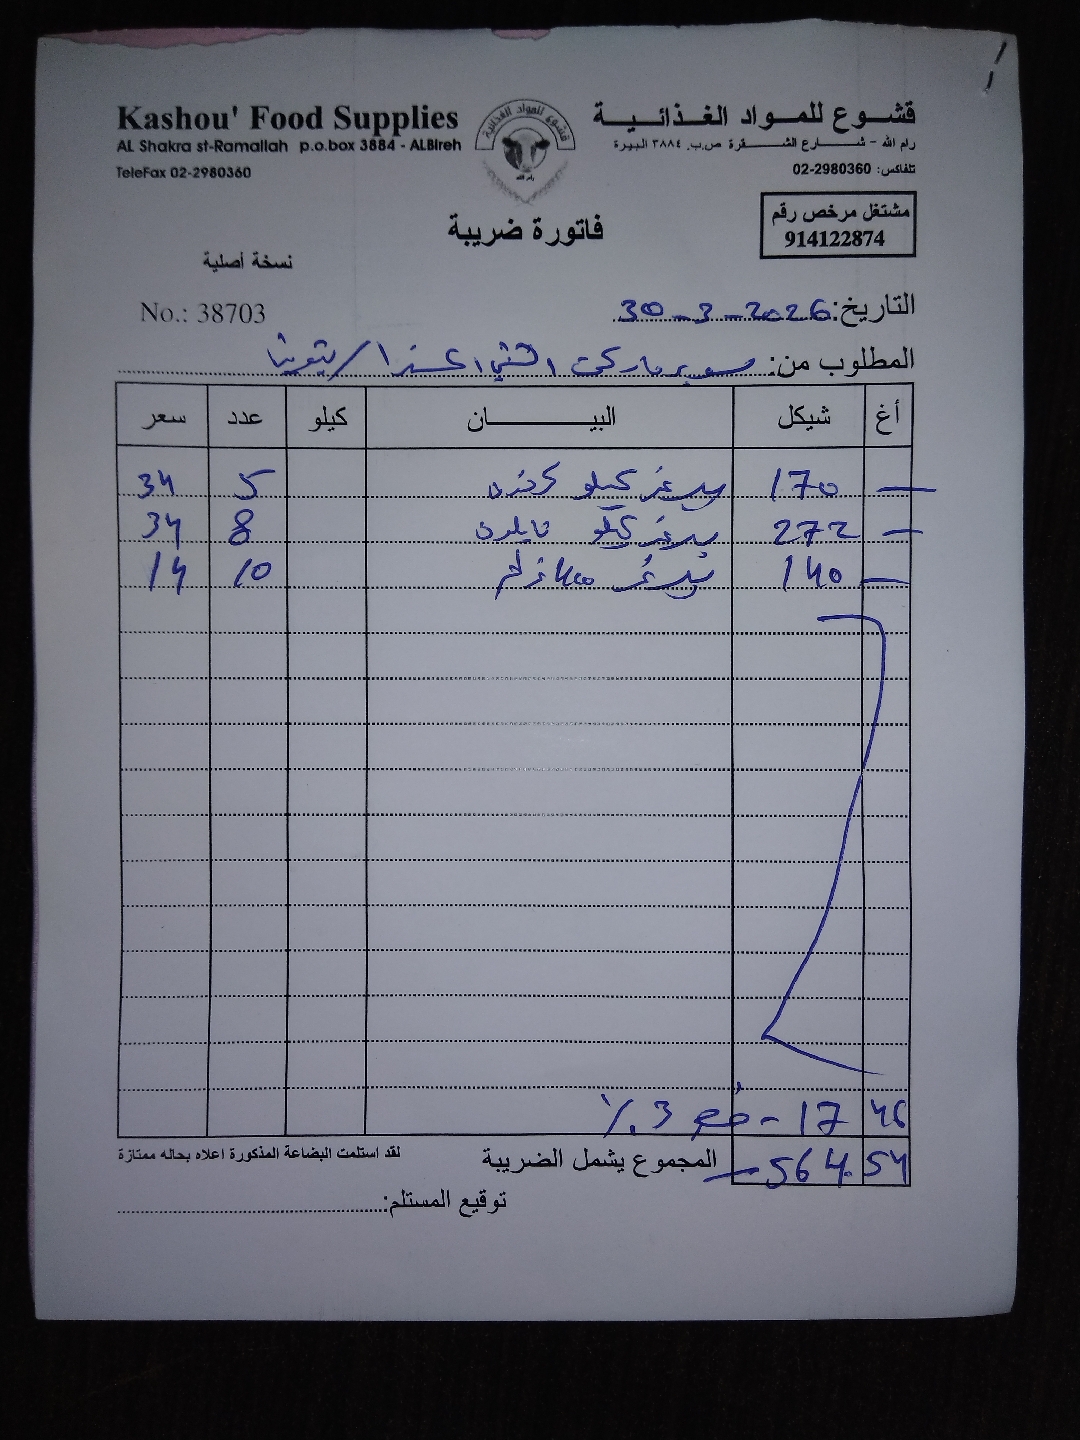 Kashou' Food Supplies
AL Shakra st-Ramallah p.o.box 3884 - ALBireh
TeleFax 02-2980360
قشوع للمواد الغذائية
قشوع للمواد الغذائية
رام الله
رام الله - شارع الشقرة ص.ب. ٣٨٨٤ البيرة
تلفاكس: 02-2980360
مشتغل مرخص رقم
914122874
فاتورة ضريبة
نسخة أصلية
No.: 38703
التاريخ: 30-3-2026
المطلوب من: سوبر ماركت
أغ شيكل البيان كيلو عدد سعر
— 170 برغر كيلو كرتون 5 34
— 272 برغر كيلو نايلون 8 34
— 140 برغر 10 14
46 17 - خصم 3 %
54 564 المجموع يشمل الضريبة
لقد استلمت البضاعة المذكورة اعلاه بحاله ممتازة
توقيع المستلم: